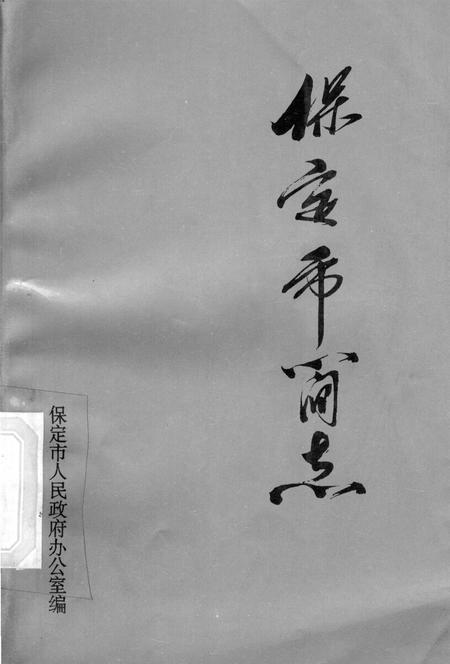 保定市简志
保定市人民政府办公室编